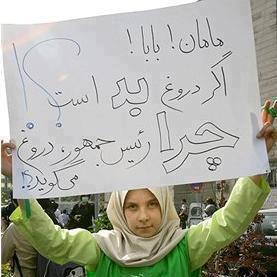 مامان! بابا!
اگر دروغ بد است ؟!
چرا رئیس جمهور، دروغ
می‌گوید؟!